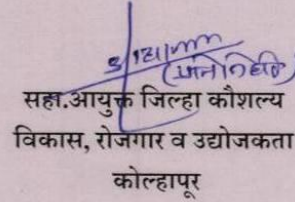 (प्रतिनिधि)
सहा.आयुक्त जिल्हा कौशल्य
विकास, रोजगार व उद्योजकता
कोल्हापूर